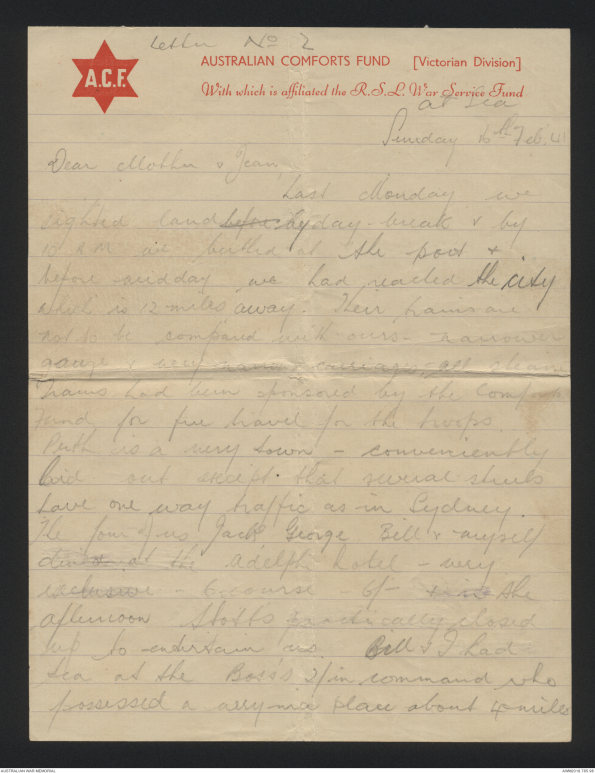 Letter No 2
A.C.F.
AUSTRALIAN COMFORTS FUND [Victorian Division]
With which is affiliated the R.S.L. War Service Fund
at Sea
Sunday 16th Feb. 41
Dear Mother & Jean,
Last Monday we
sighted land before by day-break & by
10 AM we berthed at the port &
before midday we had reached the city
which is 12 miles away. Their trains are
not to be compared with ours - narrower
gauge & very narrow carriages. All
trains had been sponsored by the Comforts
Fund for free travel for the troops.
Perth is a very town - conveniently
laid out except that several streets
have one way traffic as in Sydney.
The four of us Jack George Bill & myself
dined at the Adelphi Hotel - very
exclusive - 6 course - 6/- the
afternoon Stotts practically closed
up to entertain us. Bill & I had
tea at the Boss's 2/in command who
possessed a place about 4 miles
AUSTRALIAN WAR MEMORIAL